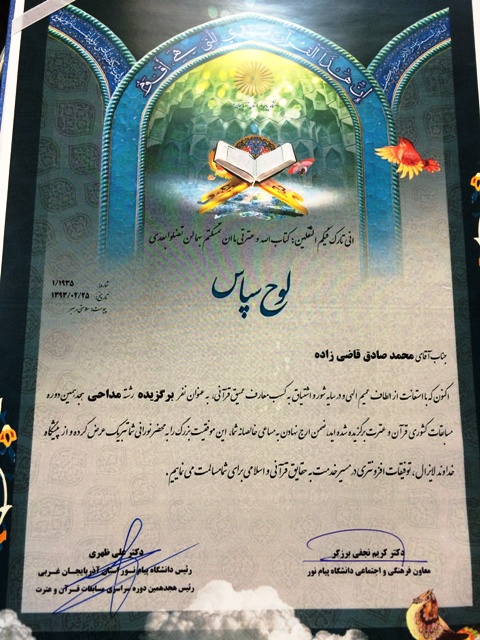 إن هذا القرآن يهدي للتي هي أقوم
انی تارک فیکم الثقلین: کتاب الله و عترتی ما ان تمسکتم بهما لن تضلوا بعدی
لوح سپاس
شماره: ۱/۱۹۳۵
تاریخ: ۱۳۹۳/۰۲/۲۵
جناب آقای محمد صادق قاضی زاده
اکنون که با استعانت از الطاف عمیم الهی و در سایه شور و اشتیاق به کسب معارف عمیق قرآنی، به عنوان نفر برگزیده رشته مداحی هجدهمین دوره
مسابقات کشوری قرآن و عترت برگزیده شده اید، ضمن ارج نهادن به مساعی خالصانه شما، این موفقیت بزرگ را به محضر نورانی شما تبریک عرض کرده و از پیشگاه
خداوند لایزال، توفیقات افزونتری در مسیر خدمت به حقایق قرآنی و اسلامی برای شما مسالت می نماییم.
دکتر کریم نجفی برزگر
معاون فرهنگی و اجتماعی دانشگاه پیام نور
دکتر علی ظهری
رئیس دانشگاه پیام نور استان آذربایجان غربی
رئیس هجدهمین دوره سراسری مسابقات قرآن و عترت